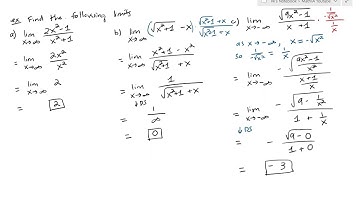 ex Find the following limits
a) lim x→∞ (2x²-1)/(x²+1)
= lim x→∞ 2x²/x²
= lim x→∞ 2
= 2
b) lim x→∞ (√(x²+1) - x) (√(x²+1) + x)/(√(x²+1) + x)
= lim x→∞ (x²+1 - x²)/(√(x²+1) + x)
= lim x→∞ 1/(√(x²+1) + x)
↓DS
= 1/∞
= 0
c) lim x→-∞ √(9x²-1)/(x+1)
as x→-∞, x = -√x²
so
= lim x→-∞ - √((9x²-1)/x²)/((x+1)/x)
= lim x→-∞ - √(9 - 1/x²)/(1 + 1/x)
↓DS
= - √(9-0)/(1+0)
= -3